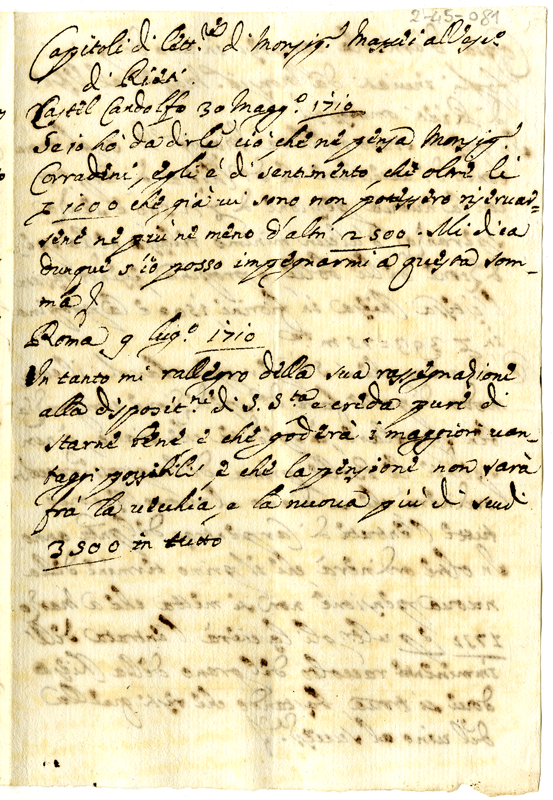 2-45-081
Capitoli di lett.re di Monsig.r Massei all Vesc.o
di Rieti.
Castel Gandolfo 30 Magg.o 1710
Se io hò da dirle ciò che ne pensa Monsig.r
Corradini, egli è di sentimento, che oltre li
1000 che già vi sono non potessero riservar-
sene ne più ne meno d'altri 2500. Mi dica
dunque s'io posso impegnarmi a questa som-
ma?
Roma 9 lug.o 1710
In tanto mi rallegro della sua rassegnazione
alla disposit.ne di S. S.tà e creda pure di
starne bene e che goderà i maggiori van-
taggi possibili, e che la pensione non sarà
frà la vecchia, e la nuova più di scudi
3500 in tutto